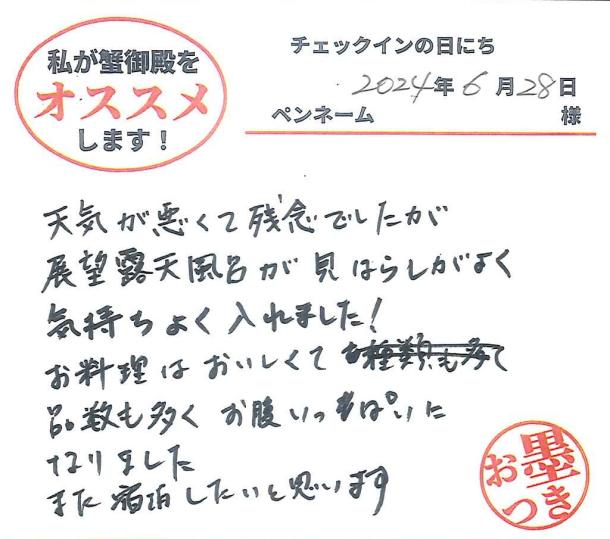 私が蟹御殿を
オススメ
します！
チェックインの日にち
2024年6月28日
ペンネーム 様
天気が悪くて残念でしたが
展望露天風呂が見はらしがよく
気持ちよく入れました！
お料理はおいしくて種類も多て
品数も多くお腹いっぱいに
なりました
また宿泊したいと思います
お墨つき